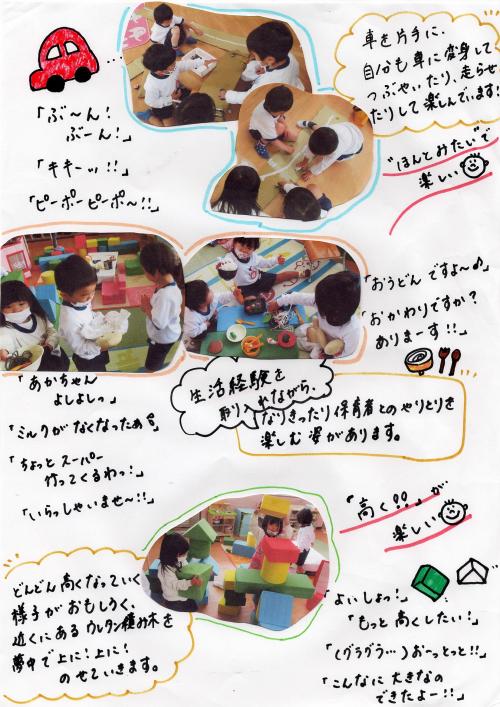 車を片手に、
自分も車に変身して
つぶやいたり、走らせ
たりして楽しんでいます!
「ぶ〜ん!
ぶーん!」
「キキーッ!!」
「ピーポーピーポ〜!!」
"ほんとみたい"で
楽しい
「おうどんですよ〜♪」
「おかわりですか?
ありまーす!!」
「あかちゃん
よしよしっ」
「ミルクがなくなったぁ」
「ちょっとスーパー
行ってくるわっ!」
「いらっしゃいませ〜!!」
生活経験を
取り入れながら、
なりきったり保育者とのやりとりを
楽しむ姿があります。
「高く!!」が
楽しい
どんどん高くなっていく
様子がおもしろく、
近くにあるウレタン積み木を
夢中で上に!上に!
のせていきます。
「よいしょっ!」
「もっと高くしたい!」
「(グラグラ…)おーっとっと!!」
「こんなに大きなの
できたよー!!」